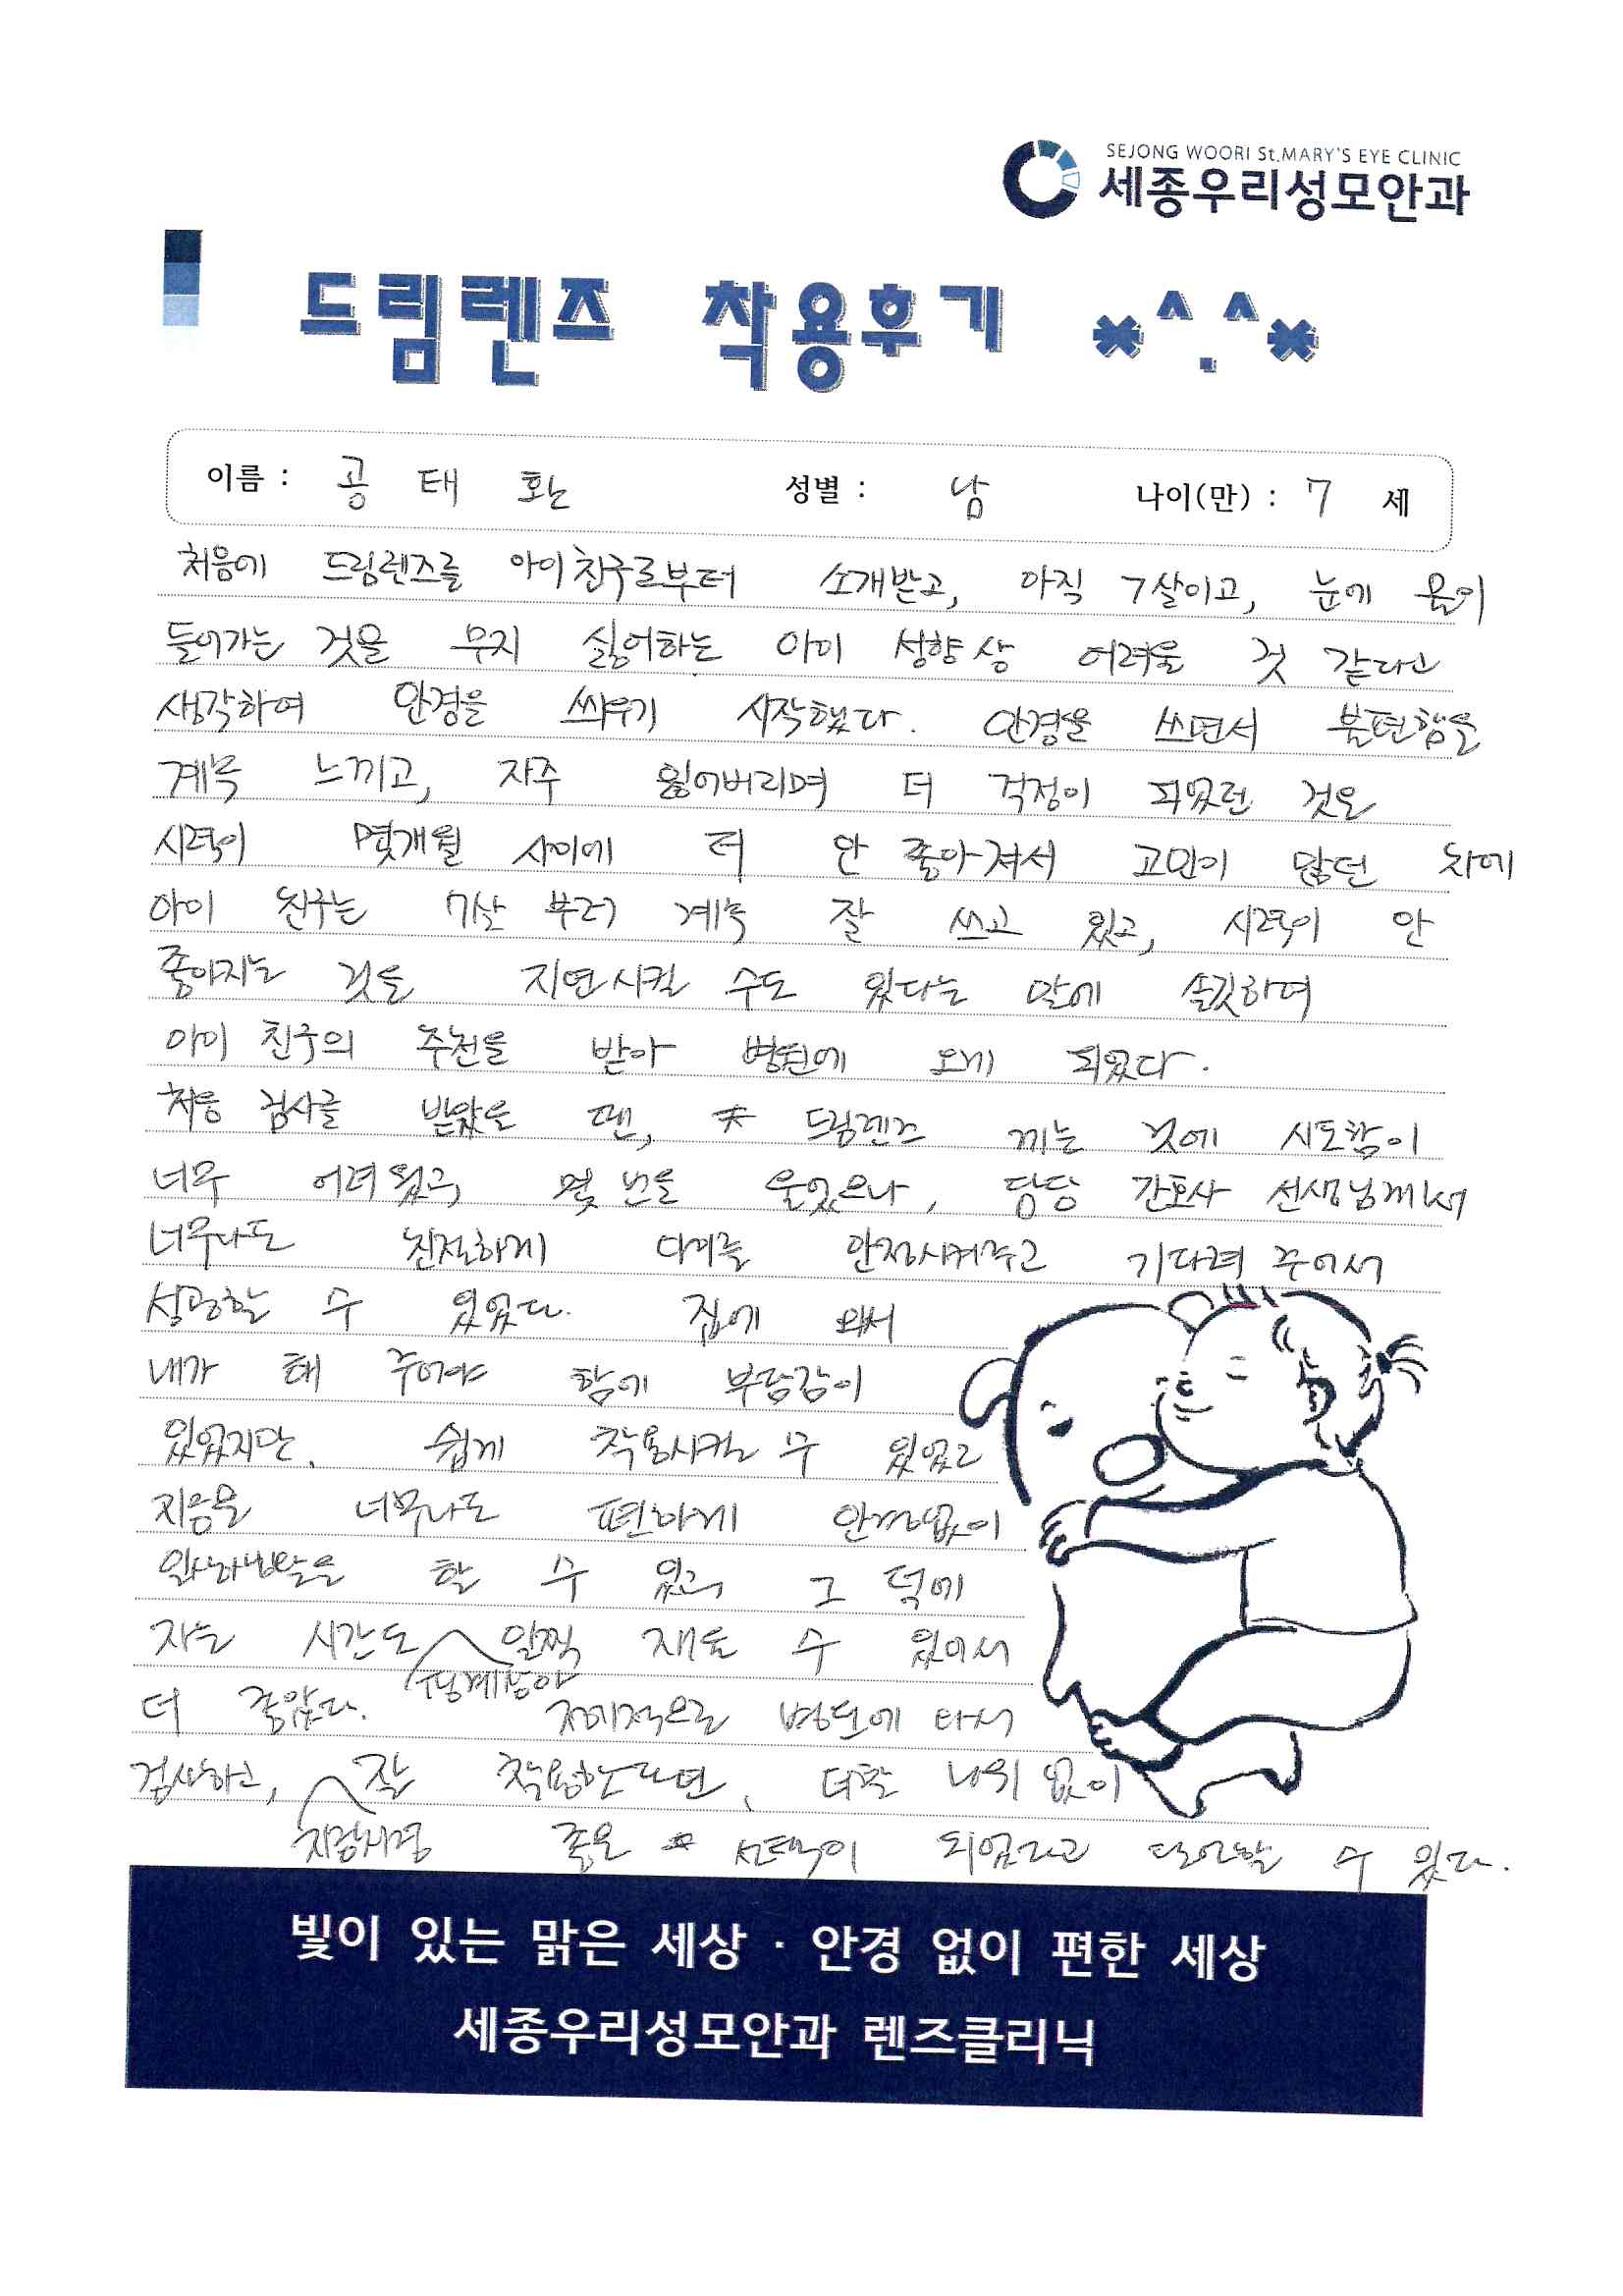 SEJONG WOORI St.MARY'S EYE CLINIC
세종우리성모안과
드림렌즈 착용후기 *^.^*
이름 : 공 태 환 성별 : 남 나이(만) : 7 세
처음에 드림렌즈를 아이친구로부터 소개받고, 아직 7살이고, 눈에 물이
들어가는 것을 무지 싫어하는 아이 성향상 어려울 것 같다고
생각하여 안경을 씌우기 시작했다. 안경을 쓰면서 불편함을
계속 느끼고, 자주 잃어버리며 더 걱정이 되었던 것은
시력이 몇개월 사이에 더 안 좋아져서 고민이 많던 차에
아이 친구는 7살 부터 계속 잘 쓰고 있고, 시력이 안
좋아지는 것을 지연시킬 수도 있다는 말에 솔깃하여
아이 친구의 추천을 받아 병원에 오게 되었다.
처음 검사를 받았을 땐, 드림렌즈 끼는 것에 시도함이
너무 어려웠고, 몇 번을 울었으나, 담당 간호사 선생님께서
너무나도 친절하게 다가올 안정시켜주고 기다려 주어서
성공할 수 있었다. 집에 와서
내가 해 주어야 함에 부담감이
있었지만, 쉽게 착용시킬 수 있었고
지금은 너무나도 편하게 안경없이
일상생활을 할 수 있고, 그 덕에
자는 시간도 일찍 재울 수 있어서
더 좋았다. 정기적으로 병원에 와서
검사하고, 잘 착용한다면, 더할 나위 없이
좋은 선택이 되었다고 단언할 수 있다.
빛이 있는 맑은 세상 · 안경 없이 편한 세상
세종우리성모안과 렌즈클리닉